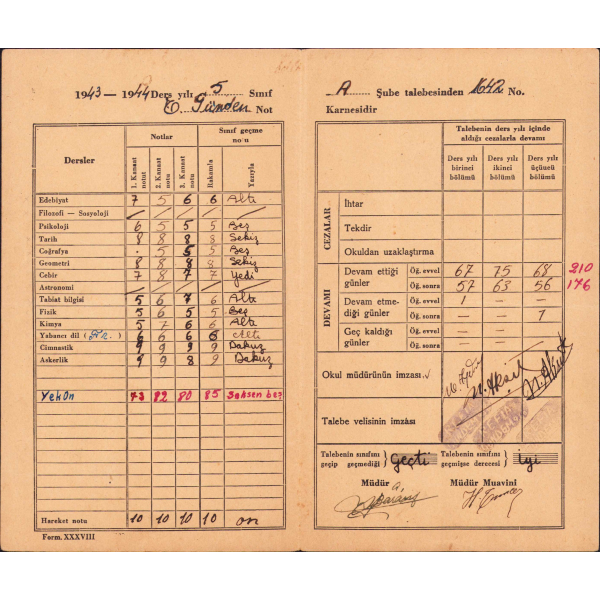 1943 — 1944 Ders yılı 5 Sınıf
E. Günden Not
Dersler
Notlar
Sınıf geçme no'u
1. Kanaat notu
2. Kanaat notu
3. Kanaat notu
Rakamla
Yazıyla
Edebiyat 7 5 6 6 Altı
Filozofi — Sosyoloji
Psikoloji 6 5 5 5 Beş
Tarih 8 8 8 8 Sekiz
Coğrafya 5 5 5 Beş
Geometri 8 8 8 8 Sekiz
Cebir 7 8 7 7 Yedi
Astronomi
Tabiat bilgisi 5 6 7 6 Altı
Fizik 5 6 5 5 Beş
Kimya 5 7 6 6 Altı
Yabancı dil (Fr.) 6 6 6 6 Altı
Cimnastik 9 9 9 9 Dokuz
Askerlik 9 9 8 9 Dokuz
Yekûn 73 82 80 85 Seksen beş
Hareket notu 10 10 10 10 on
Form. XXXVIII
A Şube talebesinden 1642 No.
Karnesidir
Talebenin ders yılı içinde
aldığı cezalarla devamı
Ders yılı birinci bölümü
Ders yılı ikinci bölümü
Ders yılı üçüncü bölümü
CEZALAR
İhtar
Tekdir
Okuldan uzaklaştırma
DEVAMI
Devam ettiği günler
Öğ. evvel 67 75 68 210
Öğ. sonra 57 63 56 176
Devam etmediği günler
Öğ. evvel 1 —
Öğ. sonra — — 7
Geç kaldığı günler
Öğ. evvel
Öğ. sonra
Okul müdürünün imzası
Talebe velisinin imzası
Talebenin sınıfını geçip geçmediği } Geçti
Talebenin sınıfını geçmişse derecesi } İyi
Müdür
Müdür Muavini